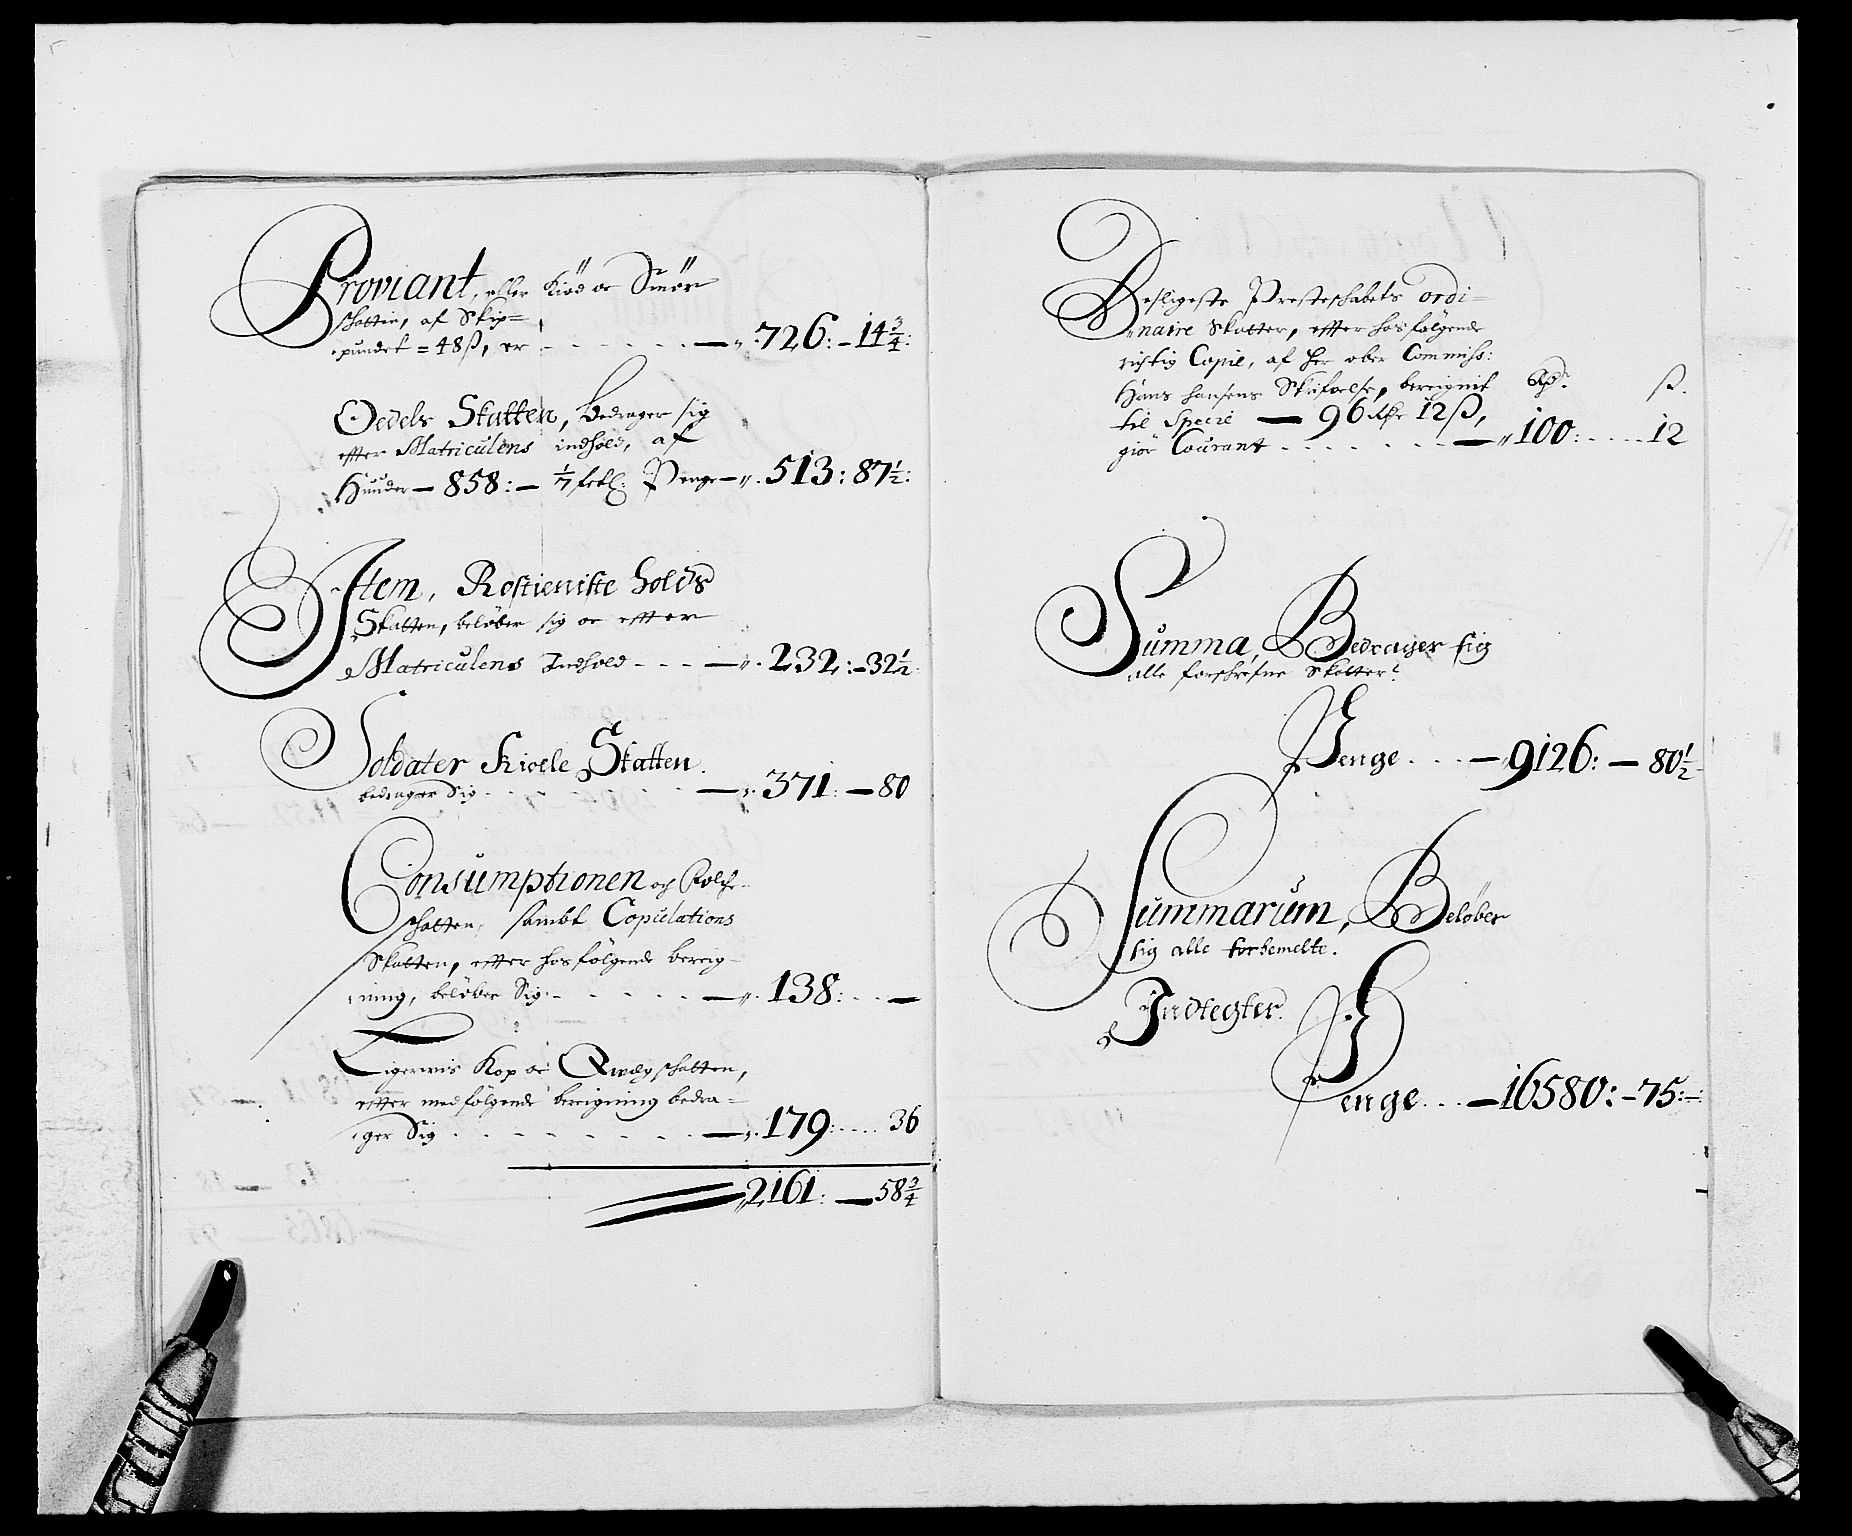 Proviant, eller Kiød oc Smør
schatten, af Skip=
pundet = 48 ß, er - - - - - — 726: - 14 3/4:
Oedels Skatten, bedrager sig
effter Matriculens indhold, af
Huuder — 858: — 1/7 Penge — 513: 87 1/2:
Item, Rostieniste holds
Skatten, beløber sig oc effter
Matriculens Indhold - - - — 232: - 32 1/2
Soldater Kiole Skatten
bedrager Sig - - - - - — 371: — 80
Consumptionen och Folche-
schatten, sambt Copulations
Skatten, effter hosfølgende bereig-
ning, beløber Sig - - - - — 138: - - —
Ligerwis Kop oc Qwægschatten,
effter medfølgende bereigning bedra-
ger Sig - - - - - - - — 179: - - - 36
2161: — 58 3/4
Desligeste Presteschabets ordi=
naire Skatter, effter hosfølgende
richtig Copie, af Her ober Commiss:
Hans Hansens Skrifvelse, bereignit Rdr. ß.
til Specie — 96 Rdr 12 ß,
giør Courant - - - - - - — 100: - - - 12
Summa, Bedrager sig
alle forschrefne Skatter
Penge - - - — 9126: — 80 1/2
Summarum, Beløber
sig alle forbemelte
Indtegter
Penge - - - — 16580: - 75: -